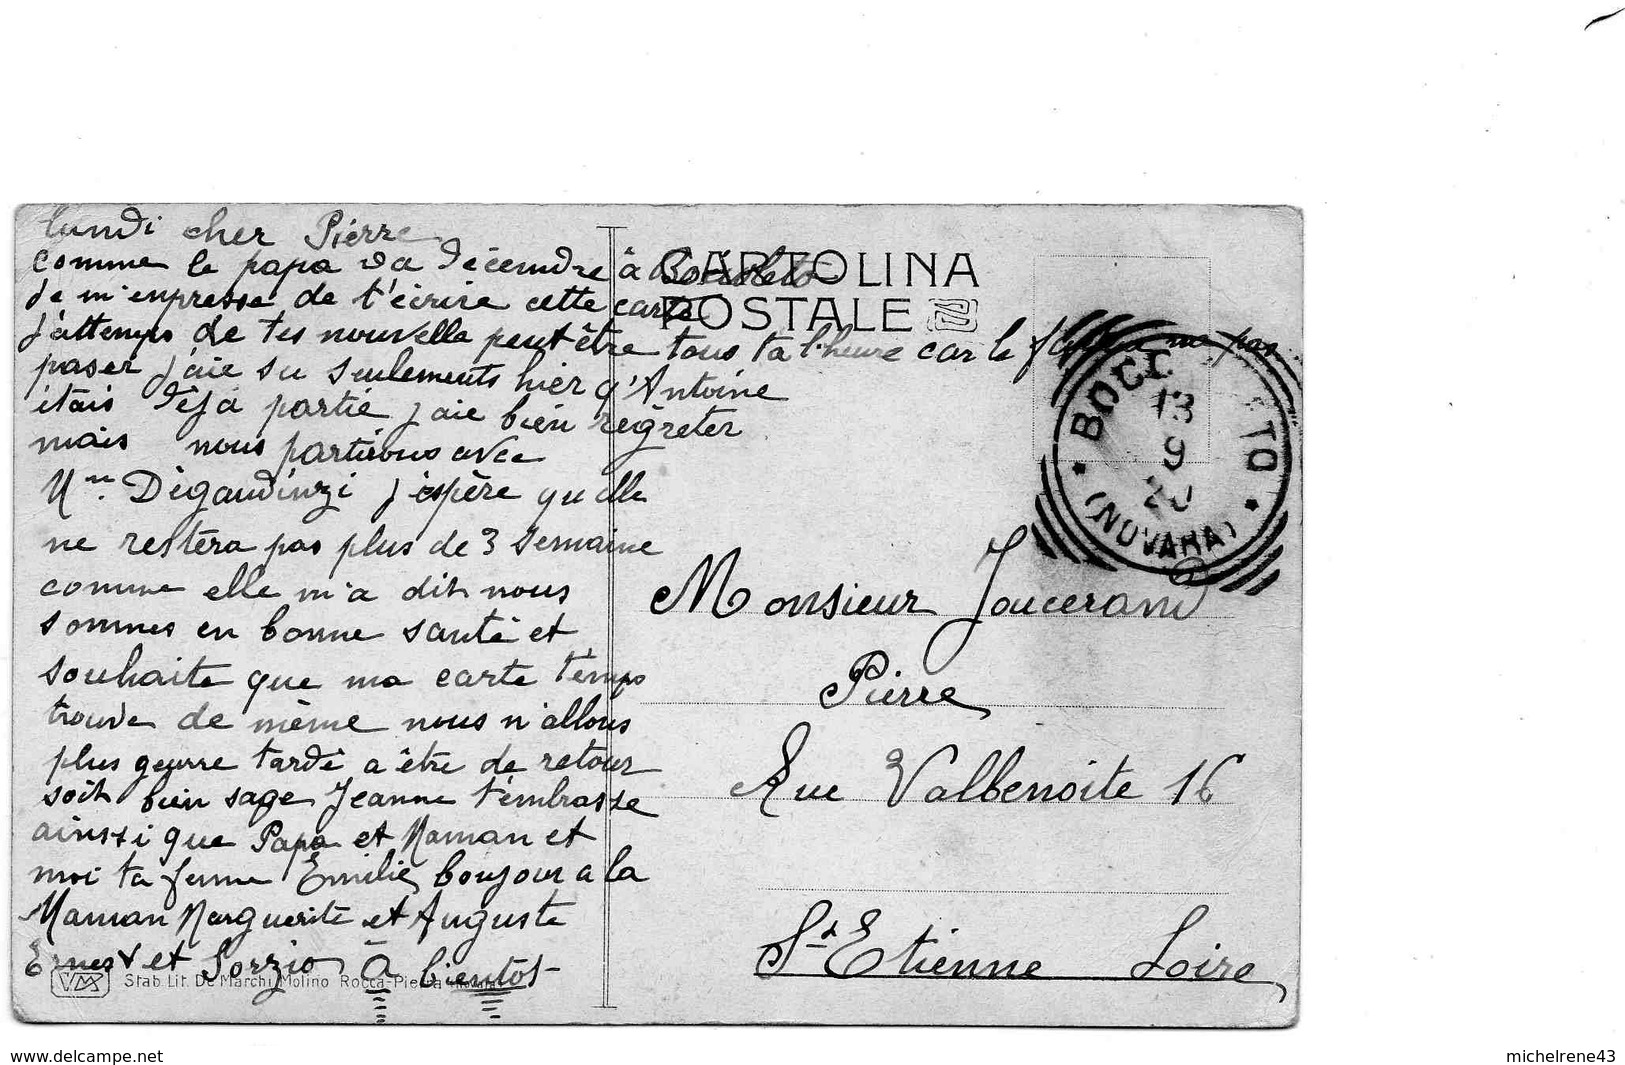 lundi cher Pierre
comme le papa va décendre à Boccioleto
je m'enpresse de t'écrire cette carte
j'attemps de tes nouvelle peut être tous ta l'heure car le ma pas
paser j'aie su seulements hier q'Antoine
étais déjà partie j aie bien règreter
mais nous partirons avec
Dégaudinzi j'espère quelle
ne restera pas plus de 3 semaine
comme elle m'a dit nous
sommes en bonne santé et
souhaite que ma carte t'emps
trouve de même nous n'allons
plus geurre tardé a être de retour
soit bien sage Jeanne t'embrasse
ainssi que Papa et Maman et
moi ta femme Emilie bonjour a la
Maman Marguerite et Auguste
Ernest et Sorzio à bientôt
VMR Stab. Lit. De Marchi Molino Rocca-Pietra (Novara)
CARTOLINA
POSTALE
BOCC ETO
13
9
20
(NOVARA)
Monsieur Joucerand
Pierre
Rue Valbenoite 16
St Etienne Loire
www.delcampe.net
michelrene43